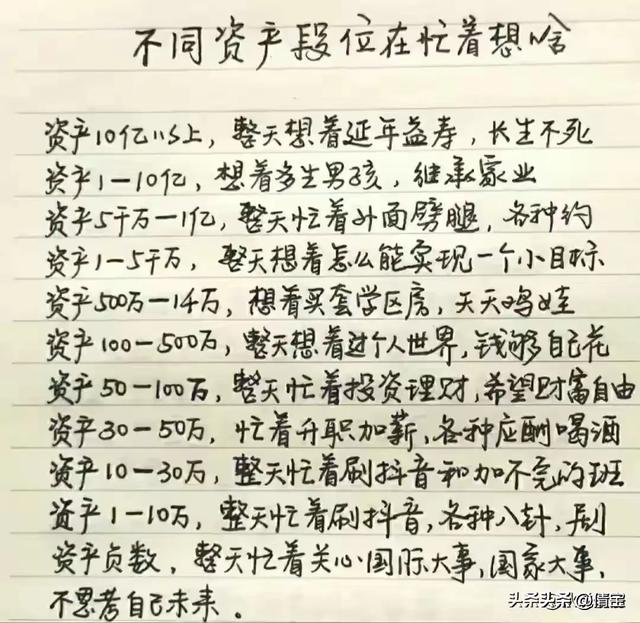 不同资产段位在忙着想啥
资产10亿以上，整天想着延年益寿，长生不死
资产1一10亿，想着多生男孩，继承家业
资产5千万一1亿，整天忙着外面劈腿，各种约
资产1一5千万，整天想着怎么能实现一个小目标
资产500万一1千万，想着买套学区房，天天鸡娃
资产100一500万，整天想着过个人世界，钱够自己花
资产50一100万，整天忙着投资理财，希望财富自由
资产30一50万，忙着升职加薪，各种应酬喝酒
资产10一30万，整天忙着刷抖音和加不完的班
资产1一10万，整天忙着刷抖音，各种八卦，剧
资产负数，整天忙着关心国际大事，国家大事，
不思考自己未来。
头条头条@倩宝